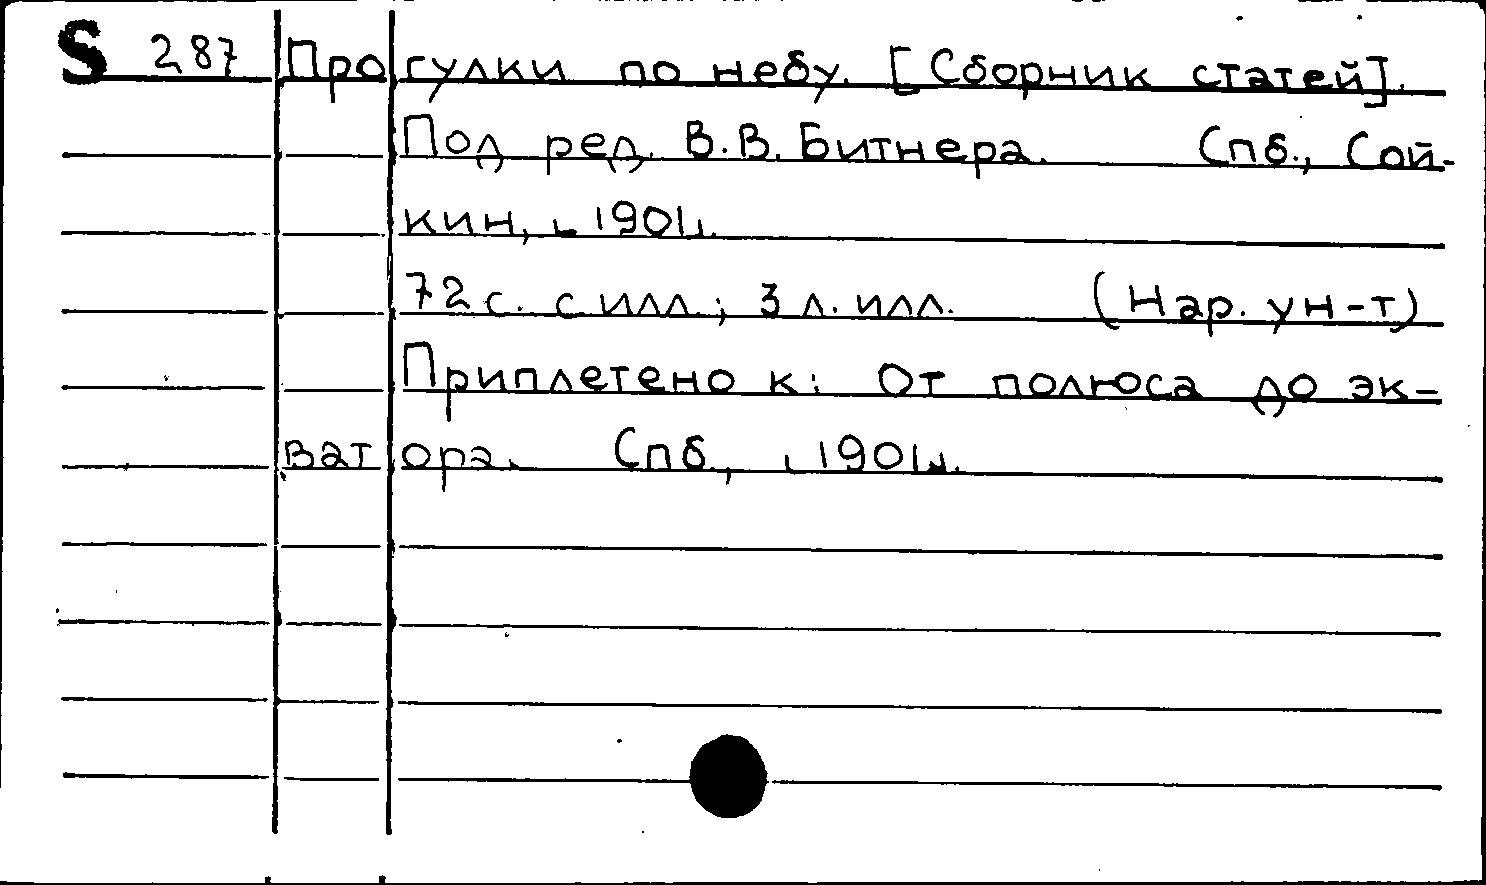 S 287 Прогулки по небу. [Сборник статей].
Под ред. В.В. Битнера. Спб., Сой-
кин, [1901].
72 с. с илл.; 3 л. илл. (Нар. ун-т)
Приплетено к: От полюса до эк-
ватора. Спб., [1901].